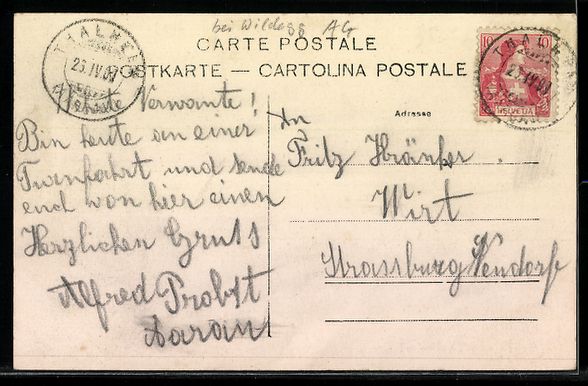 bei Wildegg Ag
CARTE POSTALE
POSTKARTE — CARTOLINA POSTALE
THALHEIM
23.IV.07
10
THALHEIM
23.IV.07
HELVETIA
Adresse
Verwante!
Bin heute an einer
Turnfahrt und sende
euch von hier einen
Herzlichen Gruss
Alfred Probst
Aarau
An
Fritz
Wirt
Strassburg Nendorf